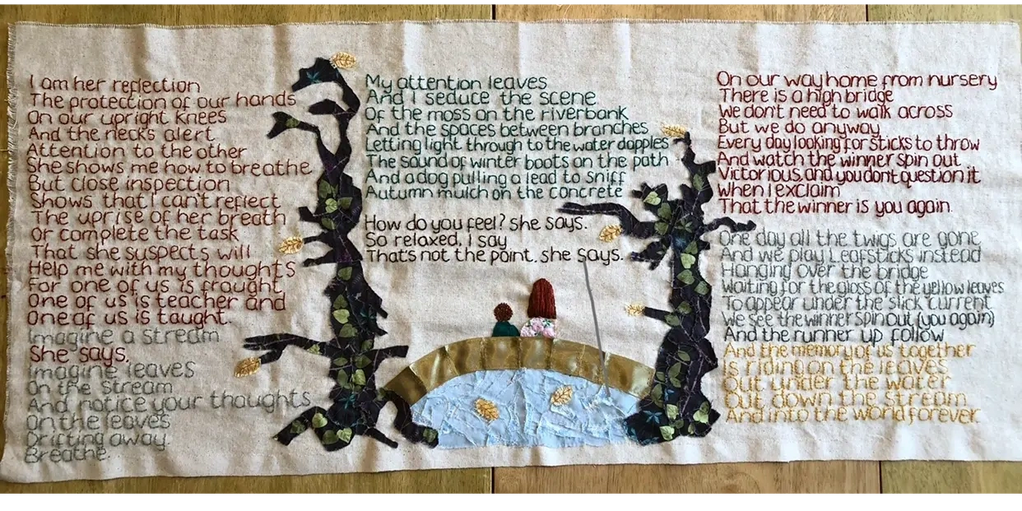 I am her reflection
The protection of our hands
On our upright knees
And the neck's alert
Attention to the other
She shows me how to breathe
But close inspection
Shows that I can't reflect
The uprise of her breath
Or complete the task
That she suspects will
Help me with my thoughts
For one of us is fraught
One of us is teacher and
One of us is taught.
Imagine a stream
She says.
Imagine leaves
On the stream
And notice your thoughts
On the leaves
Drifting away.
Breathe.
My attention leaves
And I seduce the scene
Of the moss on the riverbank
And the spaces between branches
Letting light through to the water dapples
The sound of winter boots on the path
And a dog pulling a lead to sniff
Autumn mulch on the concrete
How do you feel? she says.
So relaxed, I say
That's not the point. she says.
On our way home from nursery
There is a high bridge
We don't need to walk across
But we do anyway
Every day looking for sticks to throw
And watch the winner spin out
Victorious and you don't question it
When I exclaim
That the winner is you again.
One day all the twigs are gone
And we play Leafsticks instead
Hanging over the bridge
Waiting for the gloss of the yellow leaves
To appear under the slick current
We see the winner spin out (you again)
And the runner up follow
And the memory of us together
Is riding on the leaves
Out under the water
Out down the stream
And into the world forever.